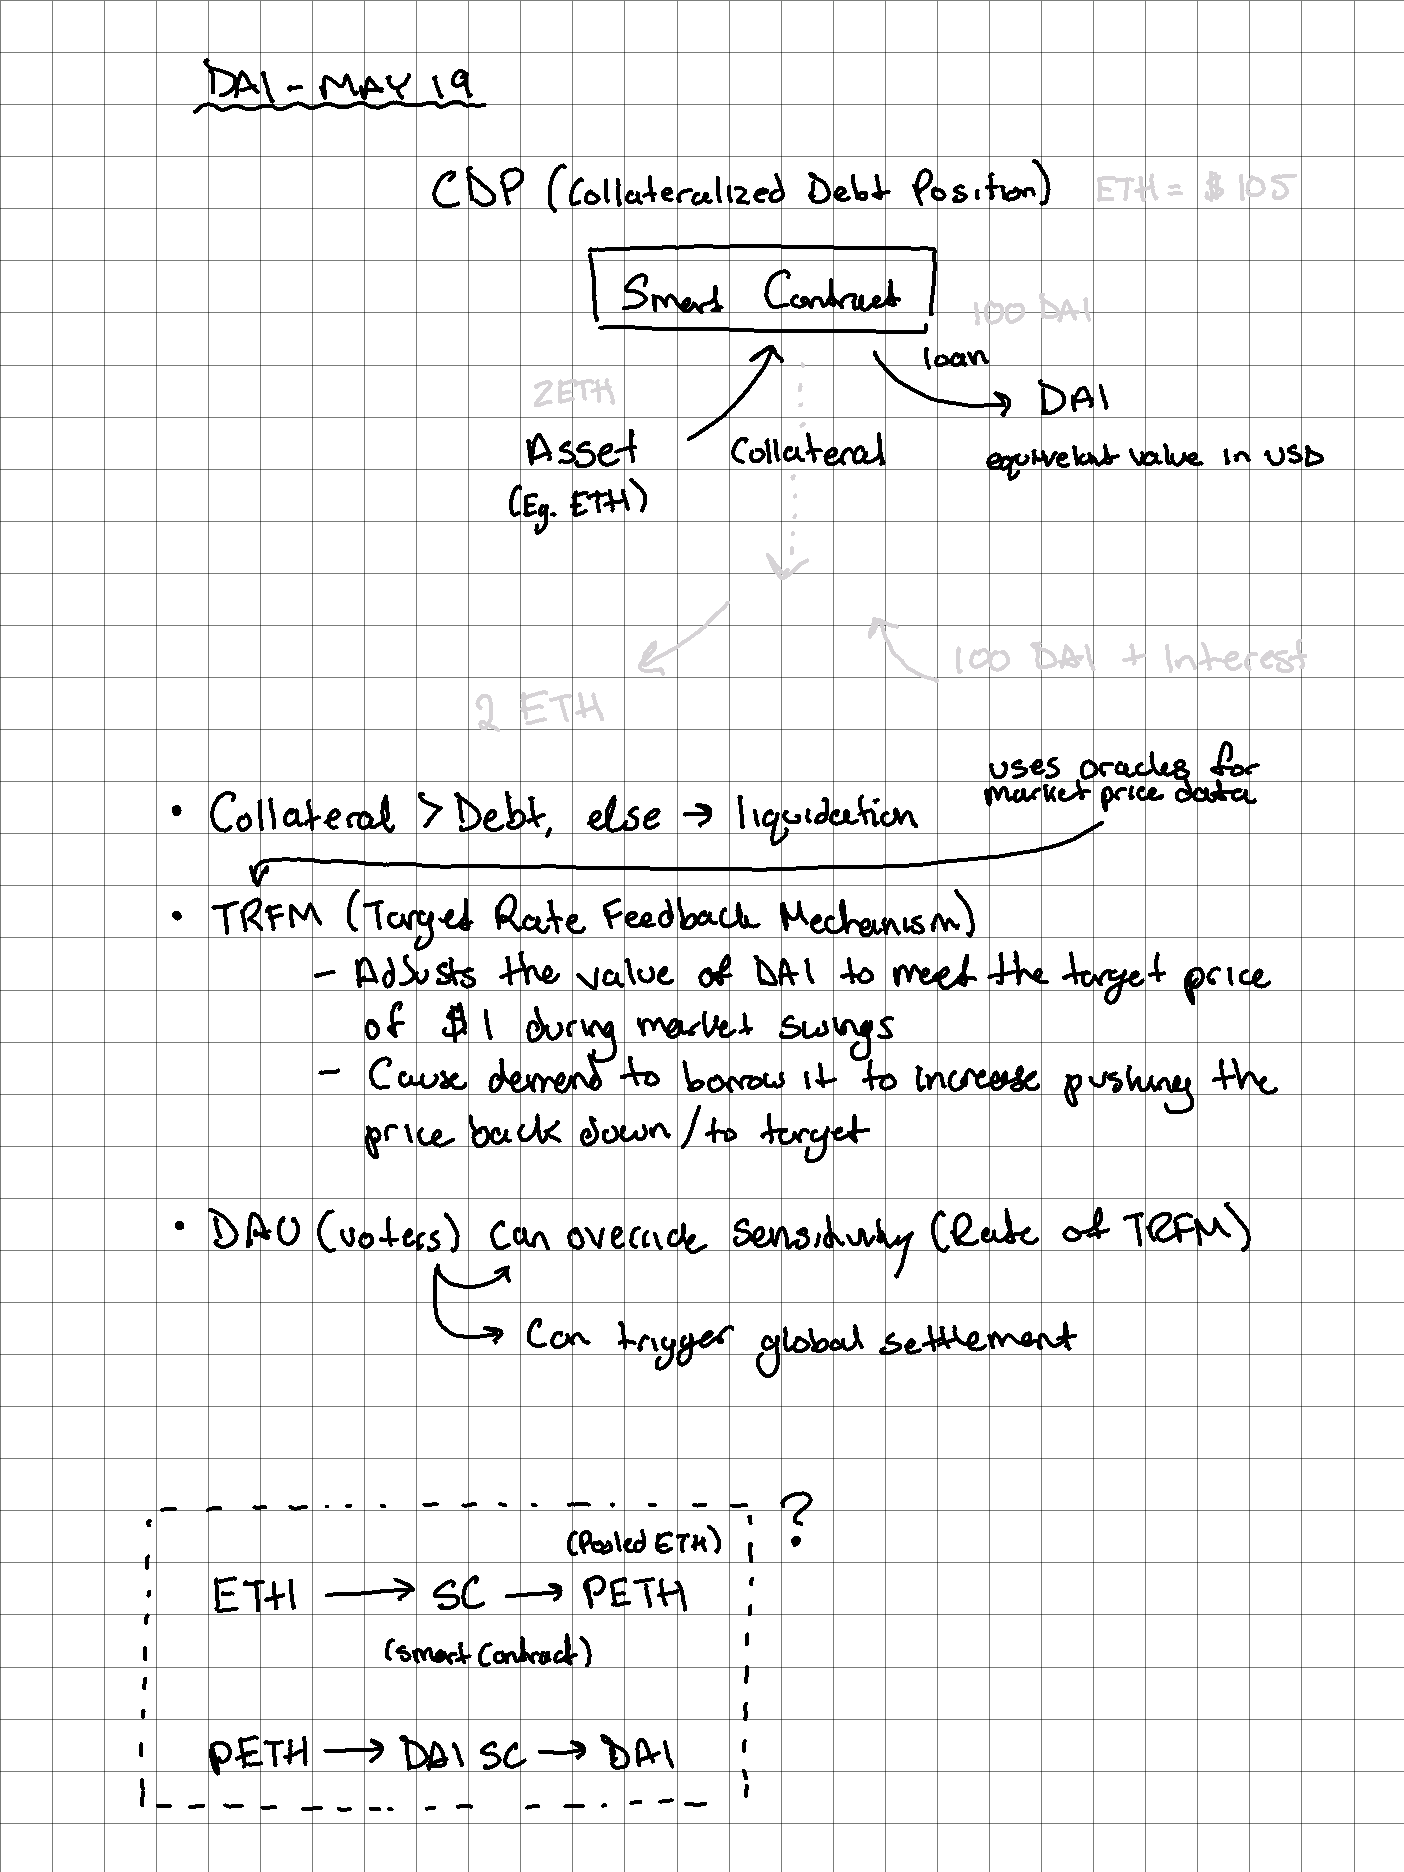 DAI - MAY 19
CDP (Collateralized Debt Position) ETH = $105
Smart Contract
100 DAI
loan
2ETH
DAI
Asset
Collateral
equivelant value in USD
(Eg. ETH)
100 DAI + Interest
2 ETH
uses oracles for
market price data
• Collateral > Debt, else → liquidation
• TRFM (Target Rate Feedback Mechanism)
- Adjusts the value of DAI to meet the target price
of $1 during market swings
- Cause demend to borrow it to increase pushing the
price back down/to target
• DAO (voters) can override sensitivity (Rate of TRFM)
→ Can trigger global settlement
?
(Pooled ETH)
ETH → SC → PETH
(smart contract)
PETH → DAI SC → DAI